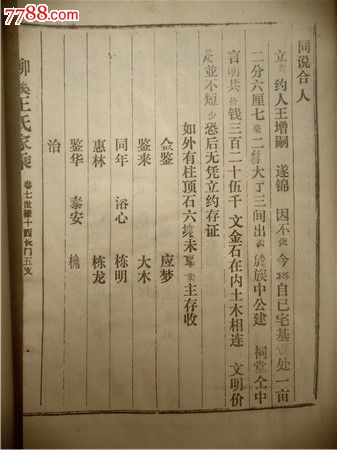 同说合人
立卖约人王增嗣 遂锦 因不便今将自己宅基一处一亩
二分六厘七毫二丝大丁三间出卖於族中公建 祠堂仝中
言明共价钱三百二十伍千 文金石在内土木相连 文明价
足並不短少恐后无凭立约存证
如外有柱顶石六块未写卖主存收
金鉴 应梦
鉴来 大木
同年 浴心 栋明
惠林 栋龙
鉴华 泰安
治
王氏家乘
卷七世录十四长门五支
7788.com